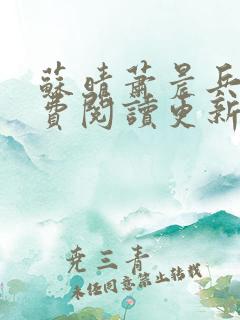 蘇晴蕭晨兵
費閱讀更新
堯三青
未经同意禁止转载